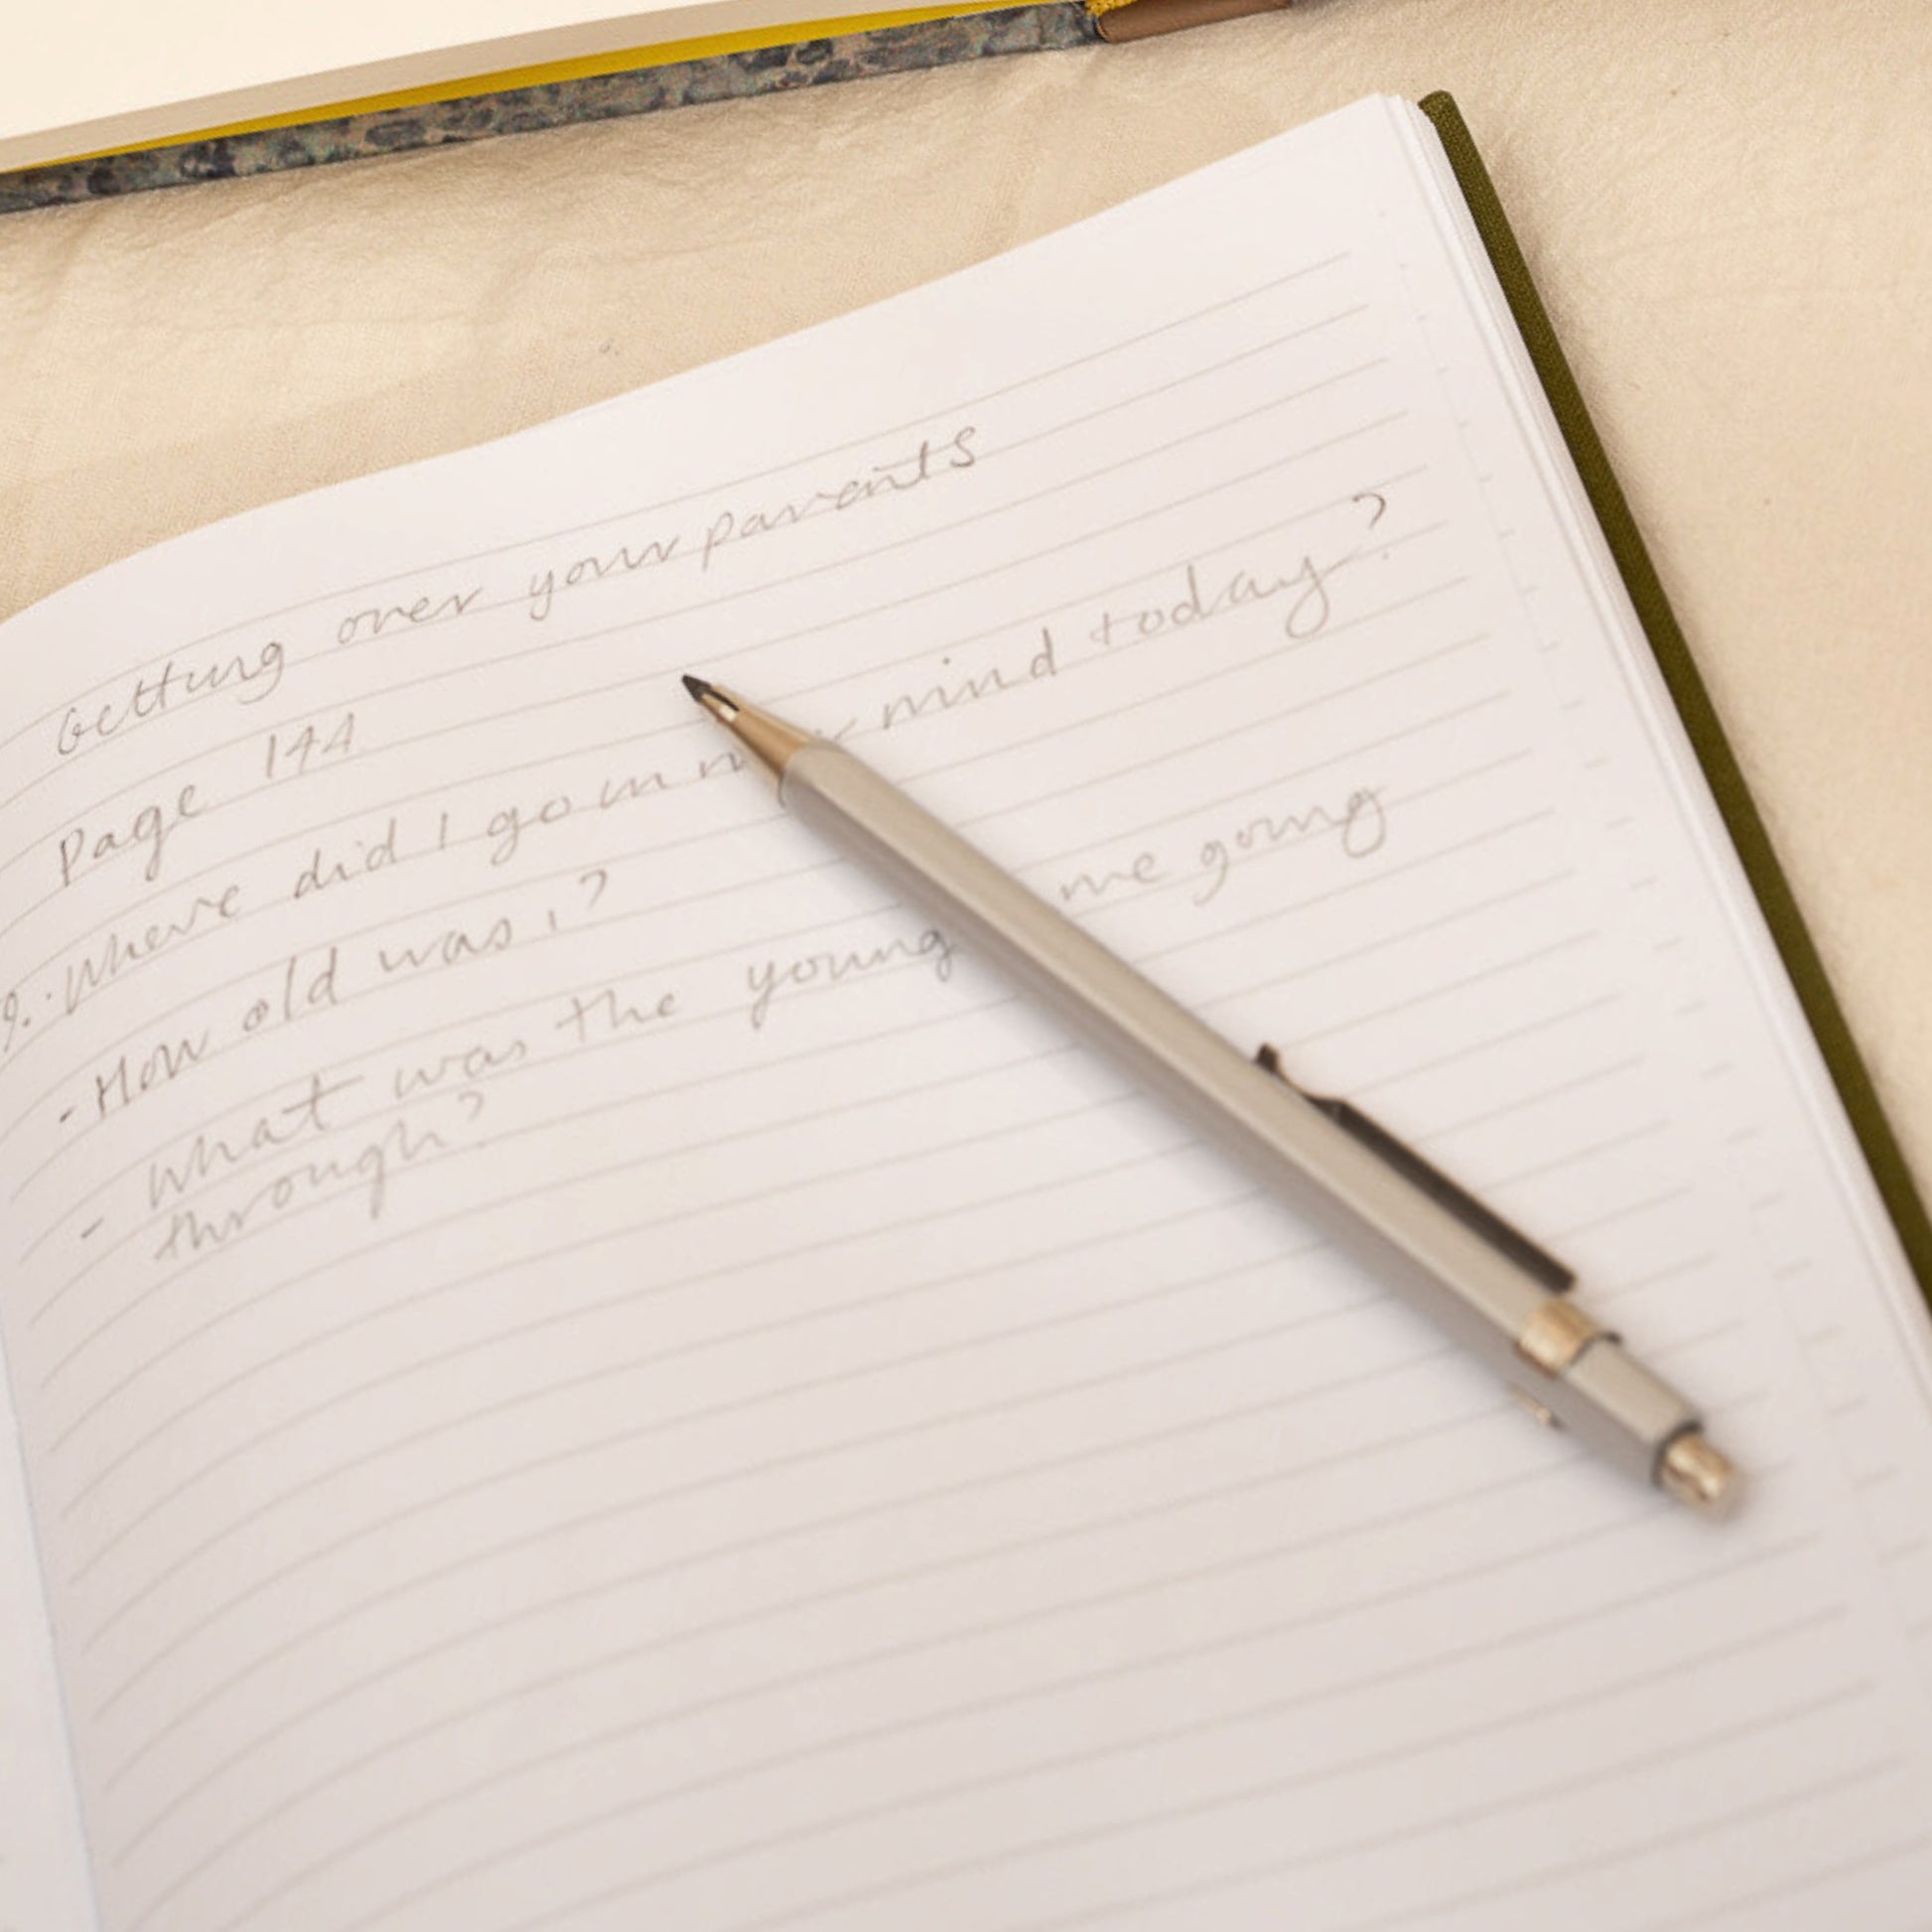 Getting over your parents
Page 144
9. Where did I go in my mind today?
- How old was I?
- What was the young me going
through?